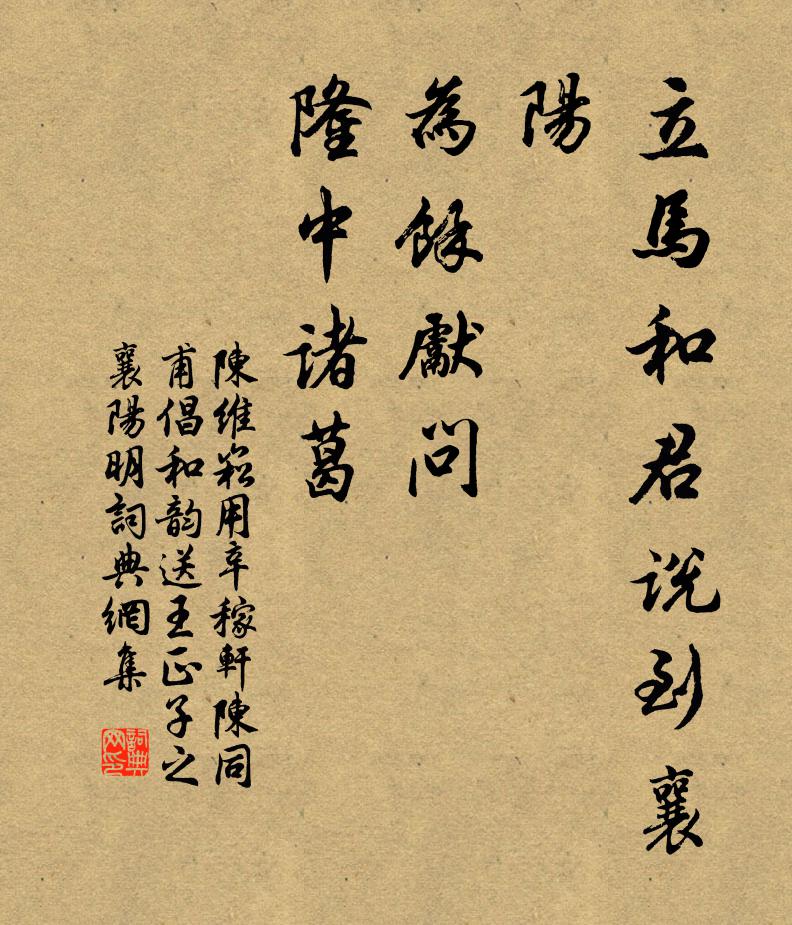 立馬和君説到襄
陽
為餘獻問
隆中諸葛
陳維崧用辛稼軒陳同
甫倡和韵送王正子之
襄陽明詞典網集
詞典
网印